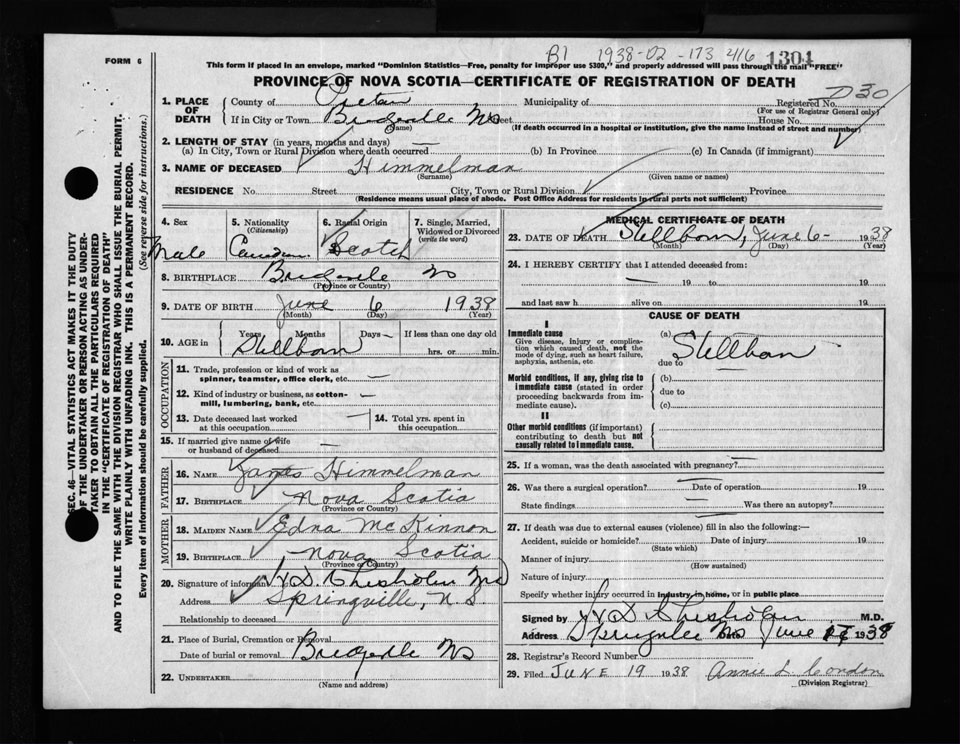 B1 1938-02-173416 1304
FORM 6
This form if placed in an envelope, marked "Dominion Statistics—Free, penalty for improper use $300," and properly addressed will pass through the mail "FREE"
PROVINCE OF NOVA SCOTIA—CERTIFICATE OF REGISTRATION OF DEATH
D30
1. PLACE OF DEATH
County of Pictou Municipality of Registered No.
(For use of Registrar General only)
If in City or Town Bridgeville NS Street House No.
(Name) (If death occurred in a hospital or institution, give the name instead of street and number)
2. LENGTH OF STAY (in years, months and days)
(a) In City, Town or Rural Division where death occurred — (b) In Province (c) In Canada (if immigrant)
3. NAME OF DECEASED Himmelman
(Surname) (Given name or names)
RESIDENCE No. Street City, Town or Rural Division Province
(Residence means usual place of abode. Post Office Address for residents in rural parts not sufficient)
4. Sex Male
5. Nationality (Citizenship) Canadian
6. Racial Origin Scotch
7. Single, Married, Widowed or Divorced (write the word)
8. BIRTHPLACE Bridgeville NS
(Province or Country)
9. DATE OF BIRTH June 6 1938
(Month) (Day) (Year)
10. AGE in Years Months Days If less than one day old
Stillborn hrs. or min.
OCCUPATION
11. Trade, profession or kind of work as spinner, teamster, office clerk, etc. —
12. Kind of industry or business, as cotton-mill, lumbering, bank, etc. —
13. Date deceased last worked at this occupation —
14. Total yrs. spent in this occupation
15. If married give name of wife or husband of deceased —
FATHER
16. NAME James Himmelman
17. BIRTHPLACE Nova Scotia
(Province or Country)
MOTHER
18. MAIDEN NAME Edna McKinnon
19. BIRTHPLACE Nova Scotia
(Province or Country)
20. Signature of informant D. Chisholm MD
Address Springville, N.S.
Relationship to deceased
21. Place of Burial, Cremation or Removal
Date of burial or removal Bridgeville NS
22. UNDERTAKER
(Name and address)
MEDICAL CERTIFICATE OF DEATH
23. DATE OF DEATH Stillborn, June 6 - 1938
(Month) (Day) (Year)
24. I HEREBY CERTIFY that I attended deceased from:
— 19 to 19
and last saw h alive on 19
CAUSE OF DEATH
I
Immediate cause
Give disease, injury or complication which caused death, not the mode of dying, such as heart failure, asphyxia, asthenia, etc.
(a) Stillborn
due to
Morbid conditions, if any, giving rise to immediate cause (stated in order proceeding backwards from immediate cause).
(b)
due to
(c)
II
Other morbid conditions (if important) contributing to death but not causally related to immediate cause.
25. If a woman, was the death associated with pregnancy? —
26. Was there a surgical operation? — Date of operation 19
State findings — Was there an autopsy?
27. If death was due to external causes (violence) fill in also the following:—
Accident, suicide or homicide? Date of injury 19
(State which)
Manner of injury
(How sustained)
Nature of injury
Specify whether injury occurred in industry, in home, or in public place
Signed by D Chisholm M.D.
Address Springville NS Date June 17 1938
28. Registrar's Record Number
29. Filed JUNE 19 1938 Annie L. Condon
(Division Registrar)
SEC. 46—VITAL STATISTICS ACT MAKES IT THE DUTY
OF THE UNDERTAKER OR PERSON ACTING AS UNDER-
TAKER TO OBTAIN ALL THE PARTICULARS REQUIRED
IN THE "CERTIFICATE OF REGISTRATION OF DEATH"
AND TO FILE THE SAME WITH THE DIVISION REGISTRAR WHO SHALL ISSUE THE BURIAL PERMIT.
WRITE PLAINLY WITH UNFADING INK. THIS IS A PERMANENT RECORD.
Every item of information should be carefully supplied. (See reverse side for instructions.)